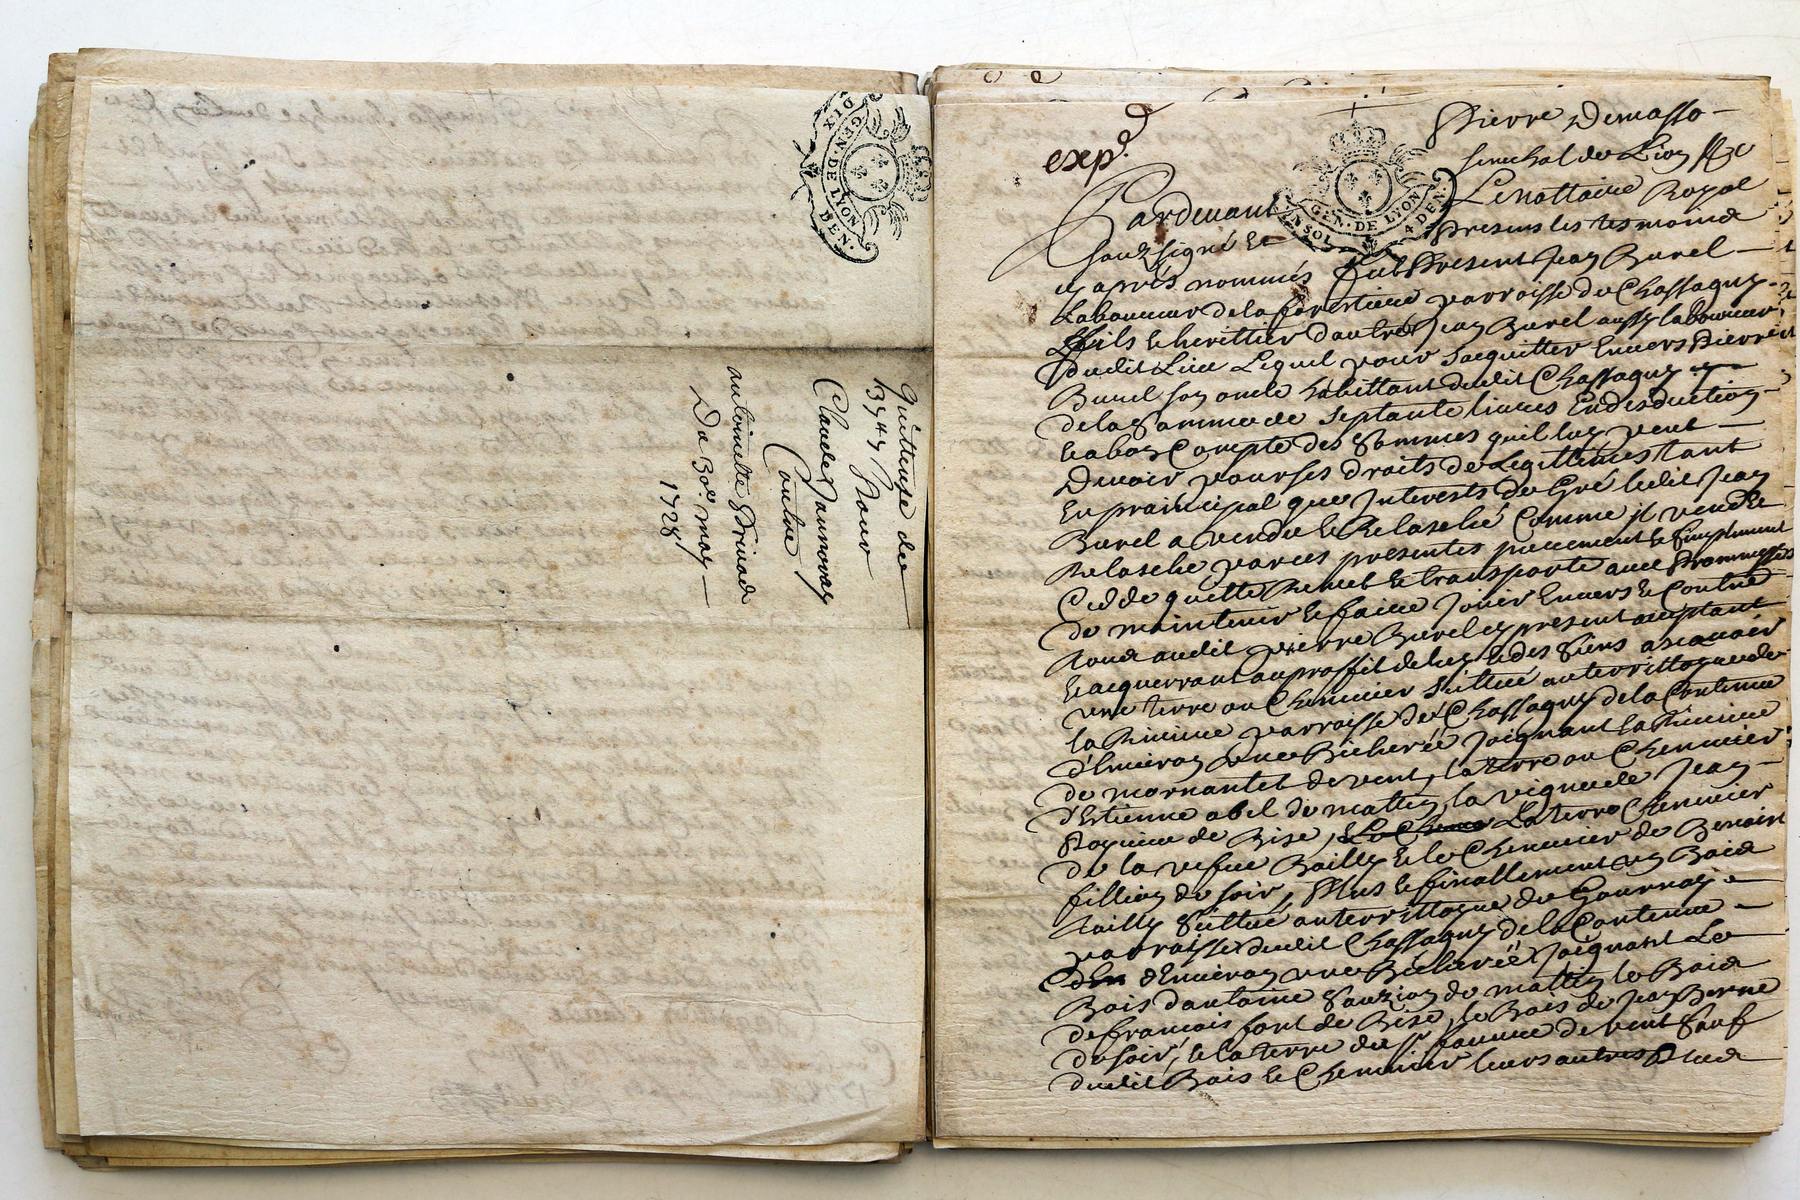 GEN · DE LYON
DIX DEN ·
Quittance de
Pour
Claude
Contre
antoinette
Du 30e. may
1728
exp.
Pierre Demasso
senechal de Lion &c
GEN · DE LYON
UN SOL 4 DEN ·
Pardevant Le nottaire Royal
souzsigné et presens les tesmoins
cy aprés nommés fut present Jean Burel
Laboureur de la forestiere parroisse de Chassagny
fils et herittier d'autre Jean Burel aussy laboureur
dudit Lieu Lequel pour s'acquitter envers Pierre
Burel son oncle habittant dudit Chassagny
de la somme de septante livres En desduction
et a bon Compte des sommes quil luy peut
Devoir pour ses droits de Legittimes tant
En principal que Interests de Gré ledit Jean
Burel a vendu et Relasché Comme il vend et
Relasche par ces presentes purement et simplement
Cedde quitte Remet et transporte avec Promesses
de maintenir et faire Jouir Envers et Contre
tous audit pierre Burel cy present acceptant
et acquerrant au proffit de luy et des siens a scavoir
une terre ou Chenevier scittué au territtoyre de
la Riviere parroisse de Chassagny de la Contenue
d'Environ une Bicherée Joignant la Riviere
de mornantet de vent, la terre ou Chennevier
d'Estienne abel de mattin, la vigne de Jean
de Bise, La terre Chennevier
de la vefve Bailly et le Chennevier de Benoist
fillion de soir, Plus et finallement un Bois
Tailly scittué au territtoyre du Gournay
parroisse dudit Chassagny de la Contenue
d'Environ une Bicherée Joignant Le
Bois d'antoine Sauzion de mattin le Bois
de francois font de Bise, le Bois de Jean Berne
de soir, et la terre du Sr faurre de vent Sauf
dudit Bois et Chennevier leurs autres Plus